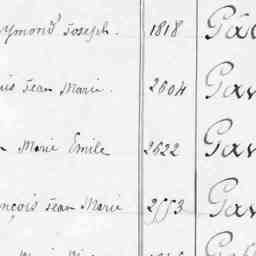 aymond Joseph. 1818
is Jean Marie. 2604 Gav
Marie Emile 2622 Gav
nçois Jean Marie 2553 Gav